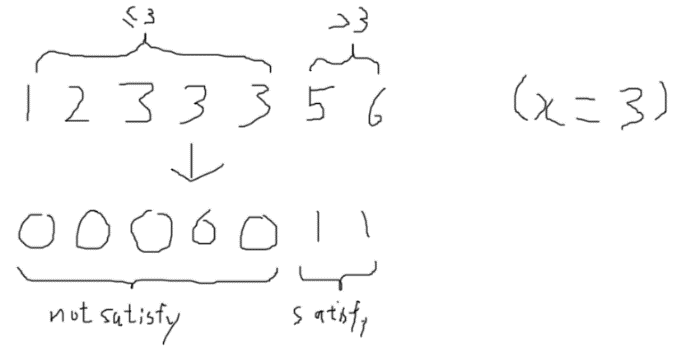 ≤3 >3
1 2 3 3 3 5 6 (x = 3)
0 0 0 0 0 1 1
not satisfy satisfy